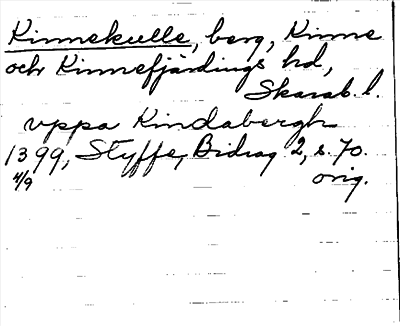 Kinnekulle, berg, Kinne
och Kinnefjärdings hd,
Skarab. l.
uppa Kindabergh
1399, Styffe, Bidrag 2, s. 70.
4/9 orig.